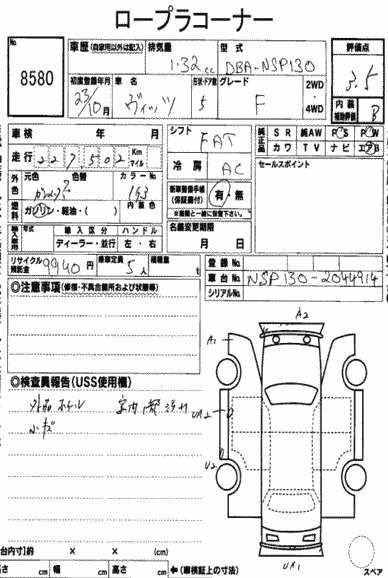 ロープラコーナー
No.
8580
車歴(自家用以外は記入)
排気量
1.32 cc
型式
DBA-NSP130
評価点
3.5
初度登録年月
23/10月
車名
ヴィッツ
形状・ドア数
5
グレード
F
2WD
・
4WD
内装
補助評価
B
車検 年 月
シフト
FAT
純正品
SR 純AW PS PW
カワ TV ナビ エアB
走行 227,502 Km マイル
冷房
AC
セールスポイント
外色
元色 色替 カラーNo
193
燃料
ガソリン・軽油・( )
内装色
新車整備手帳
(保証書付)
有・無
※書類と一緒に保管下さい。
輸入車
年式 輸入区分 ハンドル
ディーラー・並行 左・右
名義変更期限
月 日
リサイクル
預託金
9940円
乗車定員
5人
積載量
t
登録No.
車台No. NSP130-2044914
シリアルNo.
◎注意事項(修復・不具合箇所および状態等)
◎検査員報告(USS使用欄)
外品ホイール
小キズ
A2
A1
UA2
U2
UA1
スペア
台内寸】約 × × (cm)
高さ cm 幅 cm 高さ cm
←(車検証上の寸法)